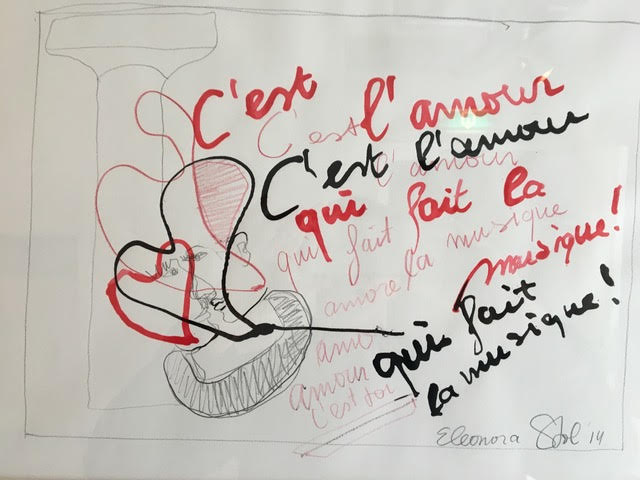 C'est l'amour
C'est l'amour
C'est l'amour
qui fait la
musique!
qui fait la musique
amore
qui fait
la musique!
ame
amour
c'est toi
Eleonora '14